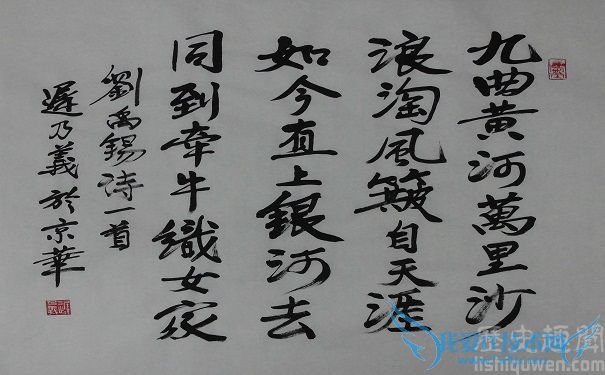 九曲黄河萬里沙
浪淘風簸自天涯
如今直上銀河去
同到牽牛織女家
劉禹錫詩一首
遲乃義於京華
歷史趣聞
lishiquwen.com